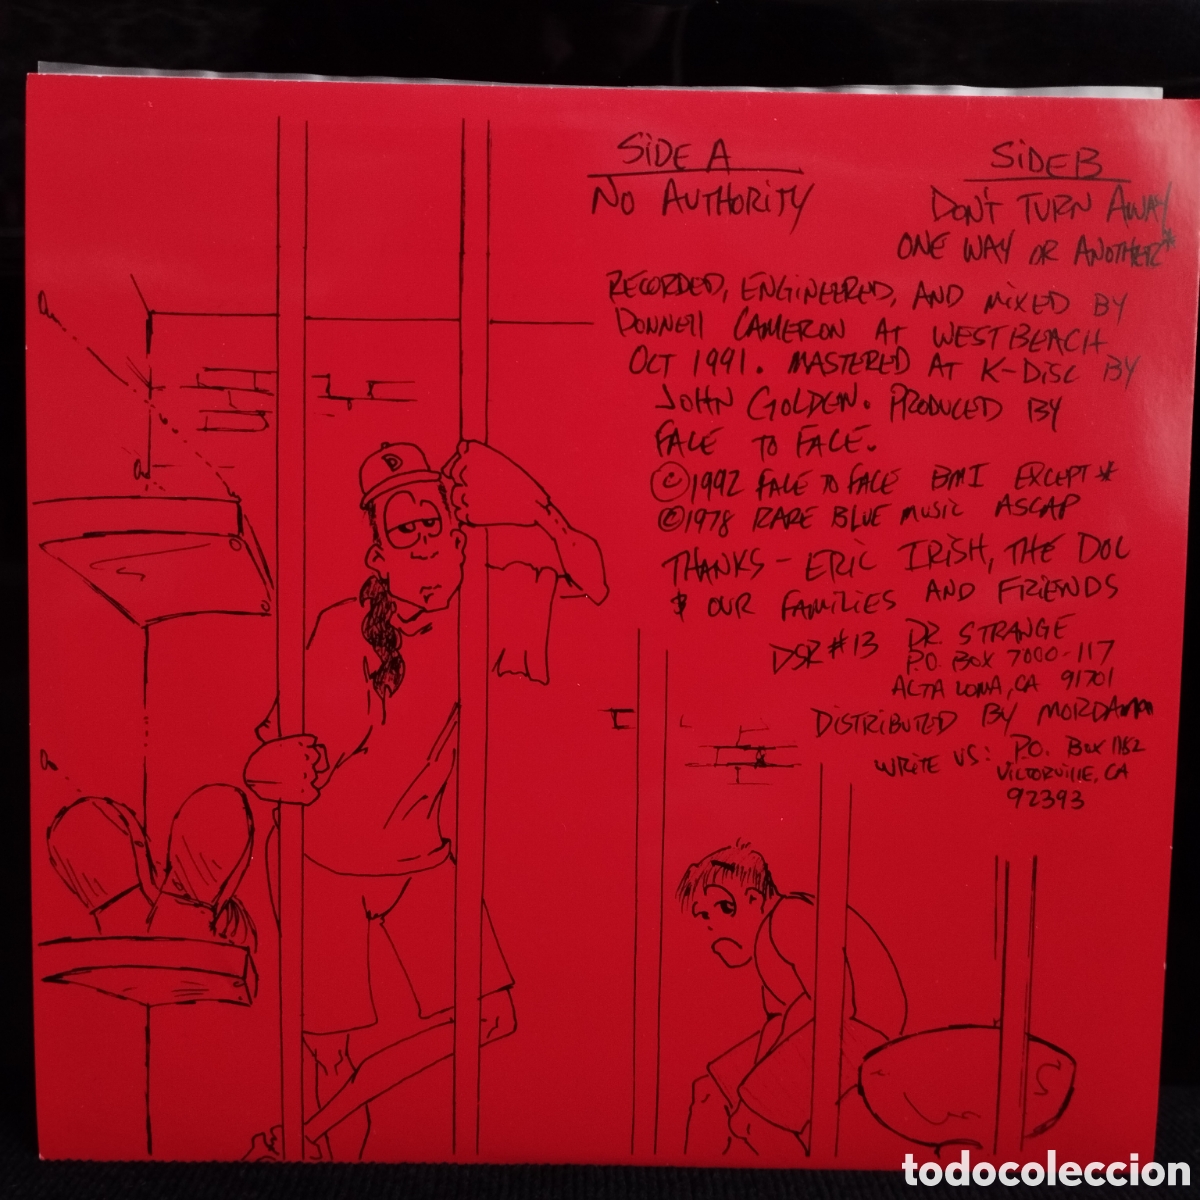 SIDE A
NO AUTHORITY
SIDE B
DON'T TURN AWAY
ONE WAY OR ANOTHER*
RECORDED, ENGINEERED, AND MIXED BY
DONNELL CAMERON AT WESTBEACH
OCT 1991. MASTERED AT K-DISC BY
JOHN GOLDEN. PRODUCED BY
FACE TO FACE.
©1992 FACE TO FACE BMI EXCEPT*
©1978 RARE BLUE MUSIC ASCAP
THANKS - ERIC IRISH, THE DOC
& OUR FAMILIES AND FRIENDS
DSR #13 DR. STRANGE
P.O. BOX 7000-117
ALTA LOMA, CA 91701
DISTRIBUTED BY MORDAM
WRITE US: P.O. BOX 1182
VICTORVILLE, CA
92393
D
todocoleccion